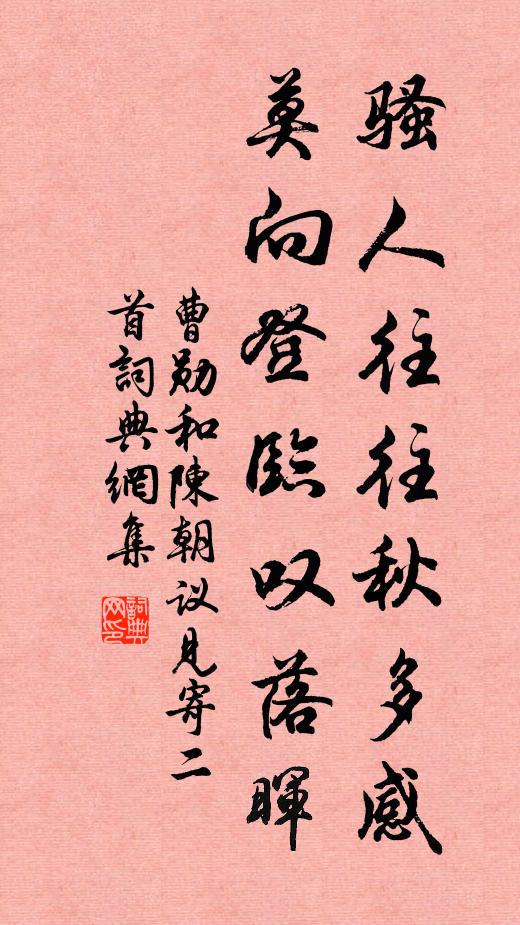 骚人往往秋多感
莫向登临叹落暉
曹勋和陳朝议見寄二
首詞典網集
詞典
网印